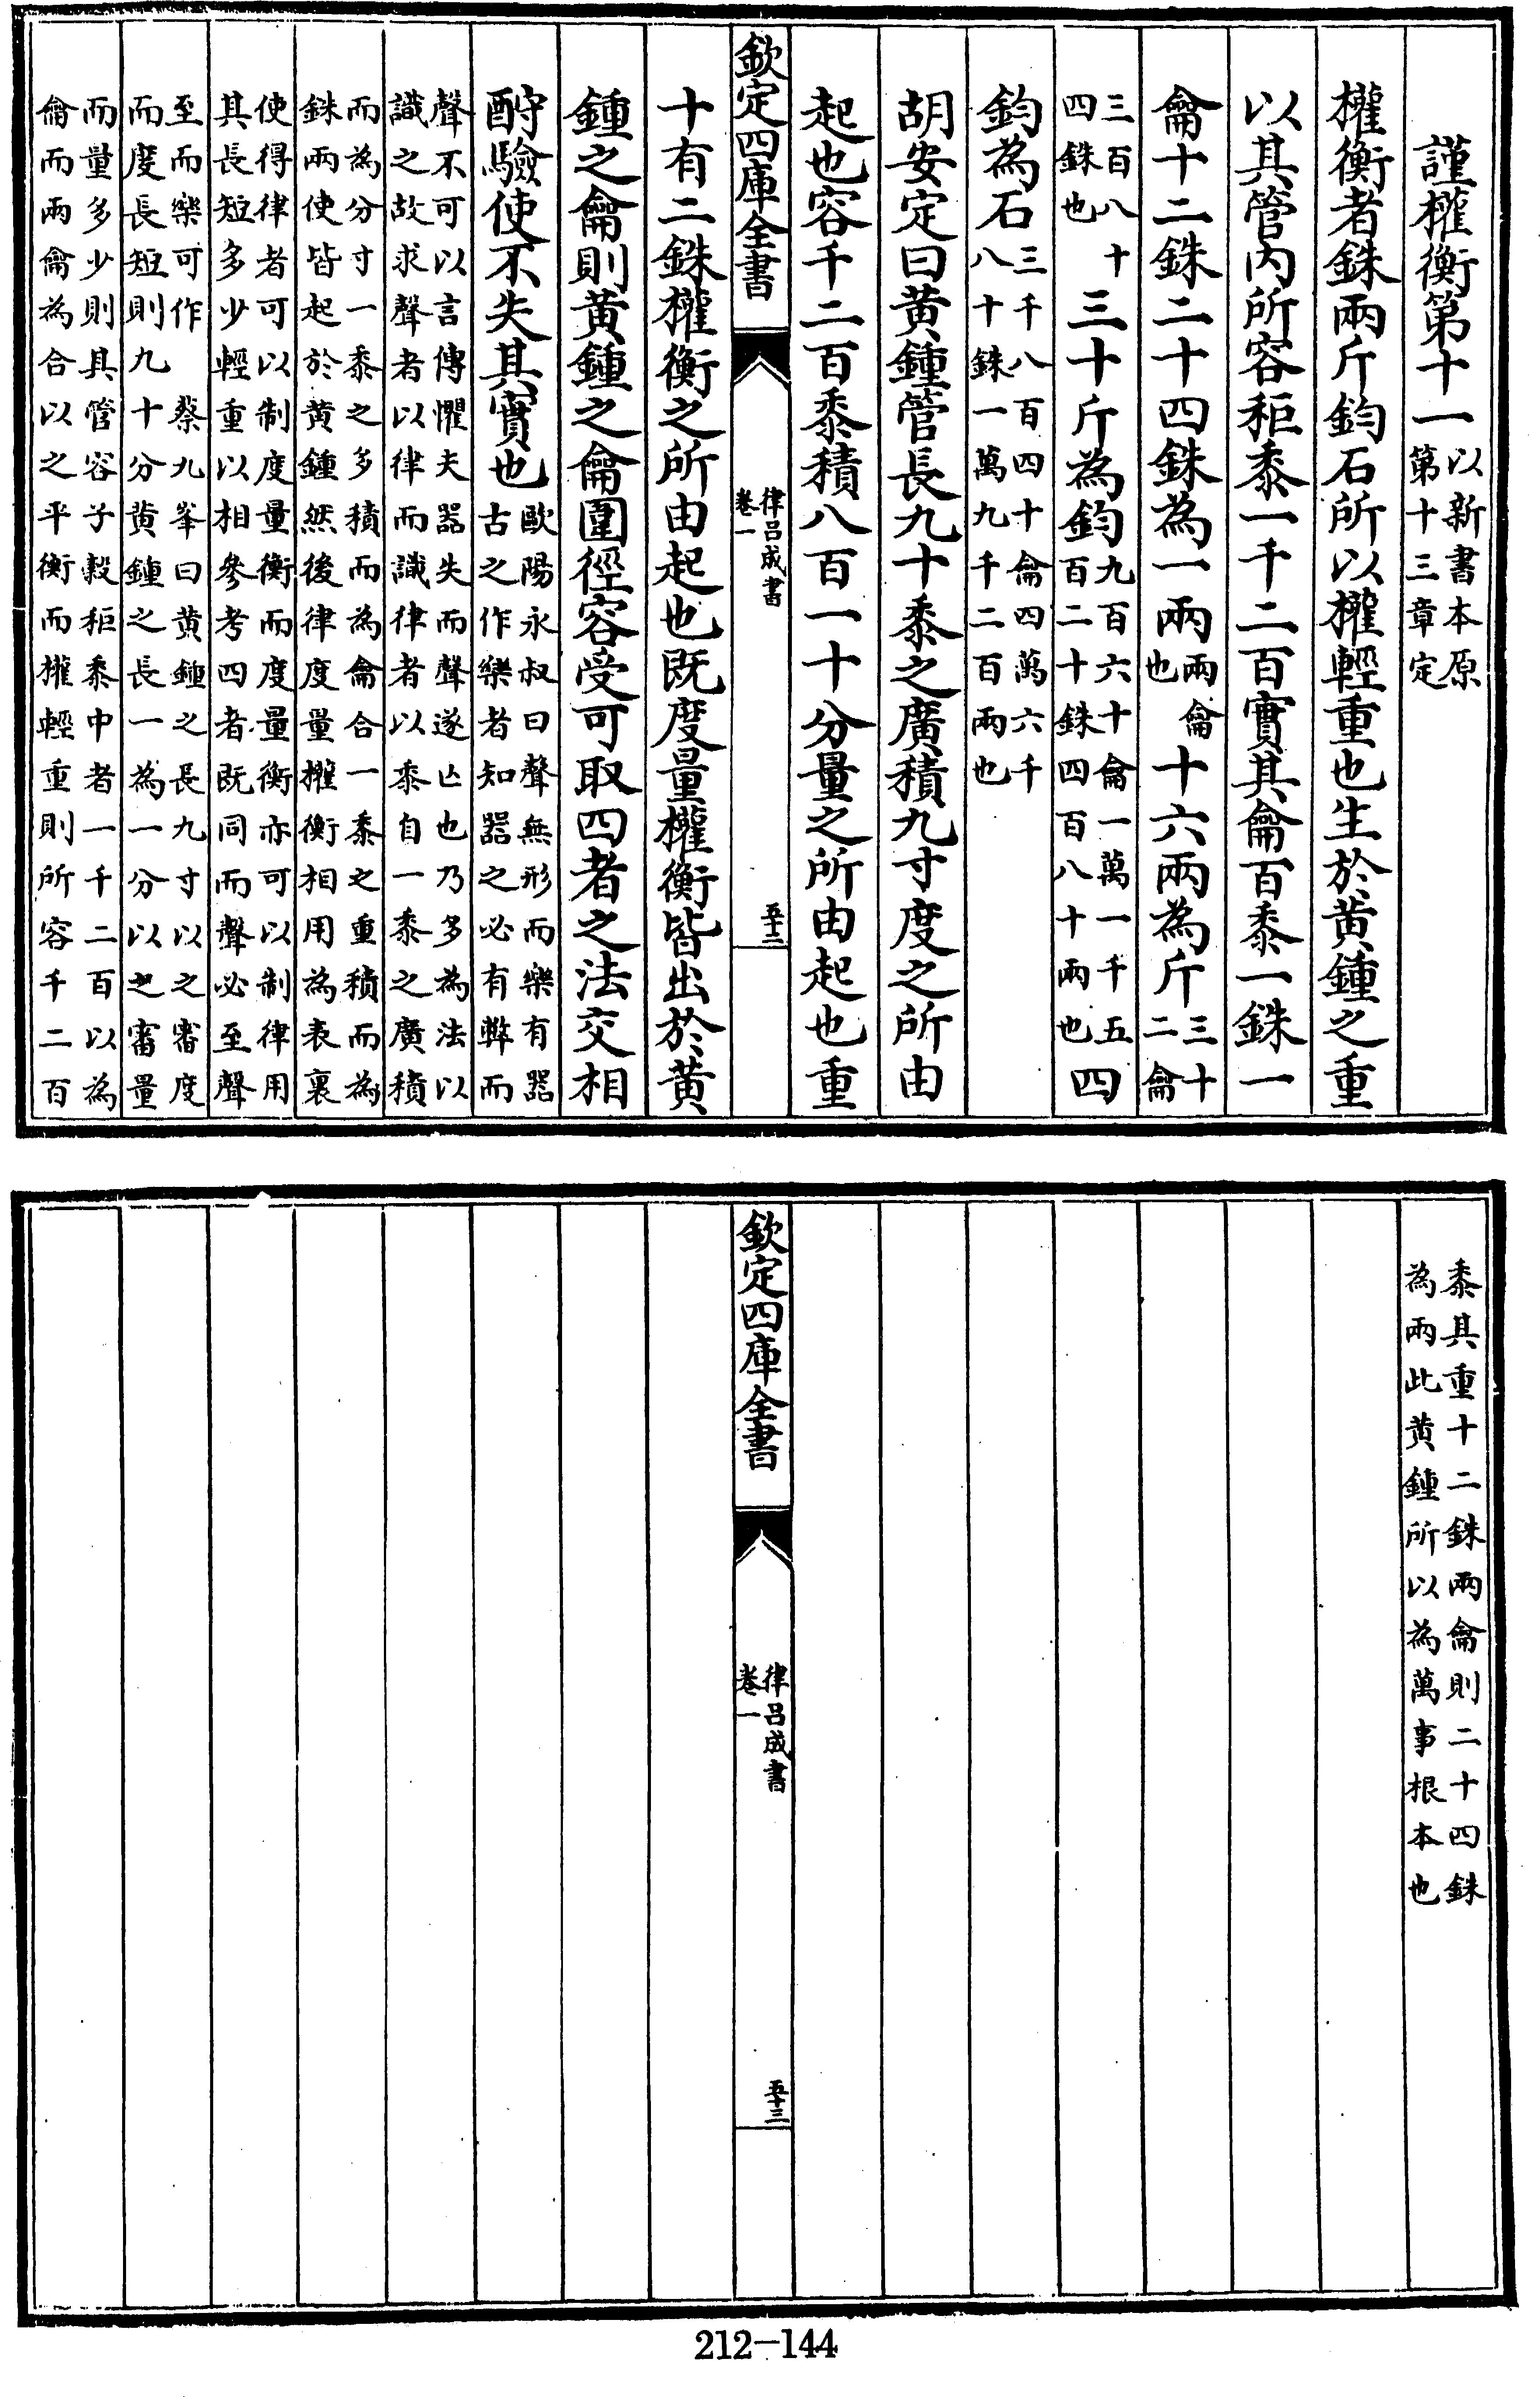 謹權衡第十一以新書本原
第十三章定
權衡者銖兩斤鈞石所以權輕重也生於黃鍾之重
以其管內所容秬黍一千二百實其龠百黍一銖一
龠十二銖二十四銖為一兩兩龠
也十六兩為斤三十
二龠
三百八十
四銖也三十斤為鈞九百六十龠一萬一千五
百二十銖四百八十兩也四
鈞為石三千八百四十龠四萬六千
八十銖一萬九千二百兩也
胡安定曰黃鍾管長九十黍之廣積九寸度之所由
起也容千二百黍積八百一十分量之所由起也重
欽定四庫全書
律呂成書
卷一
五十二
十有二銖權衡之所由起也既度量權衡皆出於黃
鍾之龠則黃鍾之龠圍徑容受可取四者之法交相
酧驗使不失其實也歐陽永叔曰聲無形而樂有器
古之作樂者知器之必有弊而
聲不可以言傳懼夫器失而聲遂亡也乃多為法以
識之故求聲者以律而識律者以黍自一黍之廣積
而為分寸一黍之多積而為龠合一黍之重積而為
銖兩使皆起於黃鍾然後律度量權衡相用為表裏
使得律者可以制度量衡而度量衡亦可以制律用
其長短多少輕重以相參考四者既同而聲必至聲
至而樂可作 蔡九峯曰黃鍾之長九寸以之審度
而度長短則九十分黃鍾之長一為一分以之審量
而量多少則具管容子穀秬黍中者一千二百以為
龠而兩龠為合以之平衡而權輕重則所容千二百
黍其重十二銖兩龠則二十四銖
為兩此黃鍾所以為萬事根本也
欽定四庫全書
律呂成書
卷一
五十三
212-144